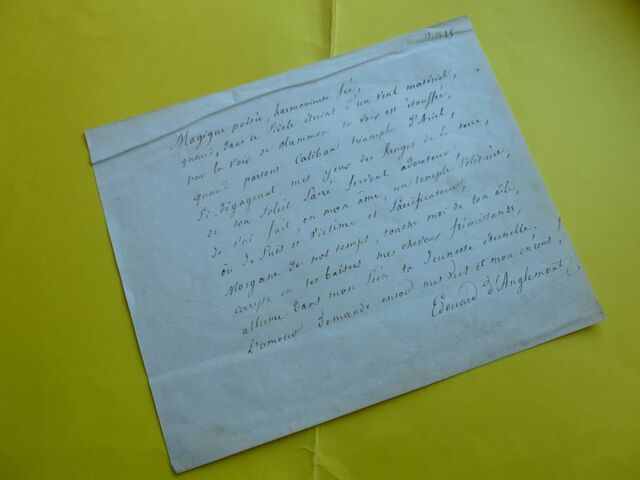 Magique poésie, harmonieuse fée,
quand, dans ce Siècle éteint d'un vent matériel,
par la voix de Mammon ta voix est étouffée,
quand partout Caliban triomphe d'Ariel,
Si, dégageant mes yeux des fanges de la terre,
de ton Soleil Sacré fervent adorateur,
Je t'ai fait, en mon âme, un temple Solitaire,
où Je Suis et Victime et Sacrificateur,
Morgane de nos temps, touche moi de ton aile,
caresse en tes baisers mes cheveux frémissants,
allume dans mon Sein ta Jeunesse éternelle.
L'amour demande encor mes vers et mon encens !
Edouard d'Anglemont